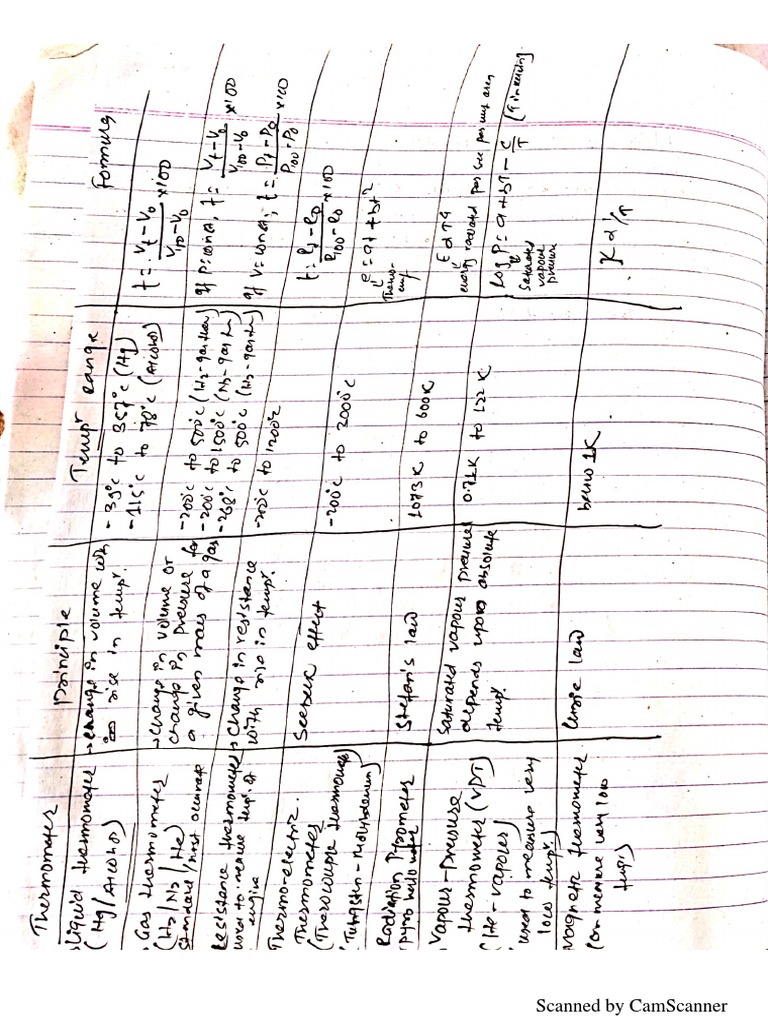 Thermometer
Principle
Tempr range
Formula
Liquid thermometer
(Hg/Alcohol)
→ change in volume with
rise in tempr.
-39°C to 357°C (Hg)
-115°C to 78°C (Alcohol)
t = Vt-V0/V100-V0 ×100
Gas thermometer
(H2/N2/He)
standard/most accurate
→ change in volume or
change in pressure for
a given mass of a gas
-200°C to 500°C (H2-gas ther)
-200°C to 1500°C (N2-gas th)
-268°C to 500°C (He-gas th)
if P=const, t = Vt-V0/V100-V0 ×100
if V=const, t = Pt-P0/P100-P0 ×100
Resistance thermometer
used to measure temp. of
engine
→ Change in resistance
with rise in tempr.
-200°C to 1200°C
t = Rt-R0/R100-R0 ×100
Thermo-electric
Thermometer
(Thermocouple thermometer)
(Tungsten-Molybdenum)
Seebeck effect
-200°C to 2000°C
e = at + bt²
Thermo
emf
Radiation Pyrometer
Stefan's law
1073K to 600K
E α T4
energy radiated per sec per unit area
Vapour-Pressure
thermometer (VPT)
(He-vapour)
used to measure very
low tempr.
Saturated vapour pressure
depends upon absolute
tempr.
0.71K to 122K
log P = a + bT - c/T (T in kelvin)
Saturated
vapour
pressure
Magnetic thermometer
can measure very low
tempr
Curie law
below 1K
X α 1/T
Scanned by CamScanner